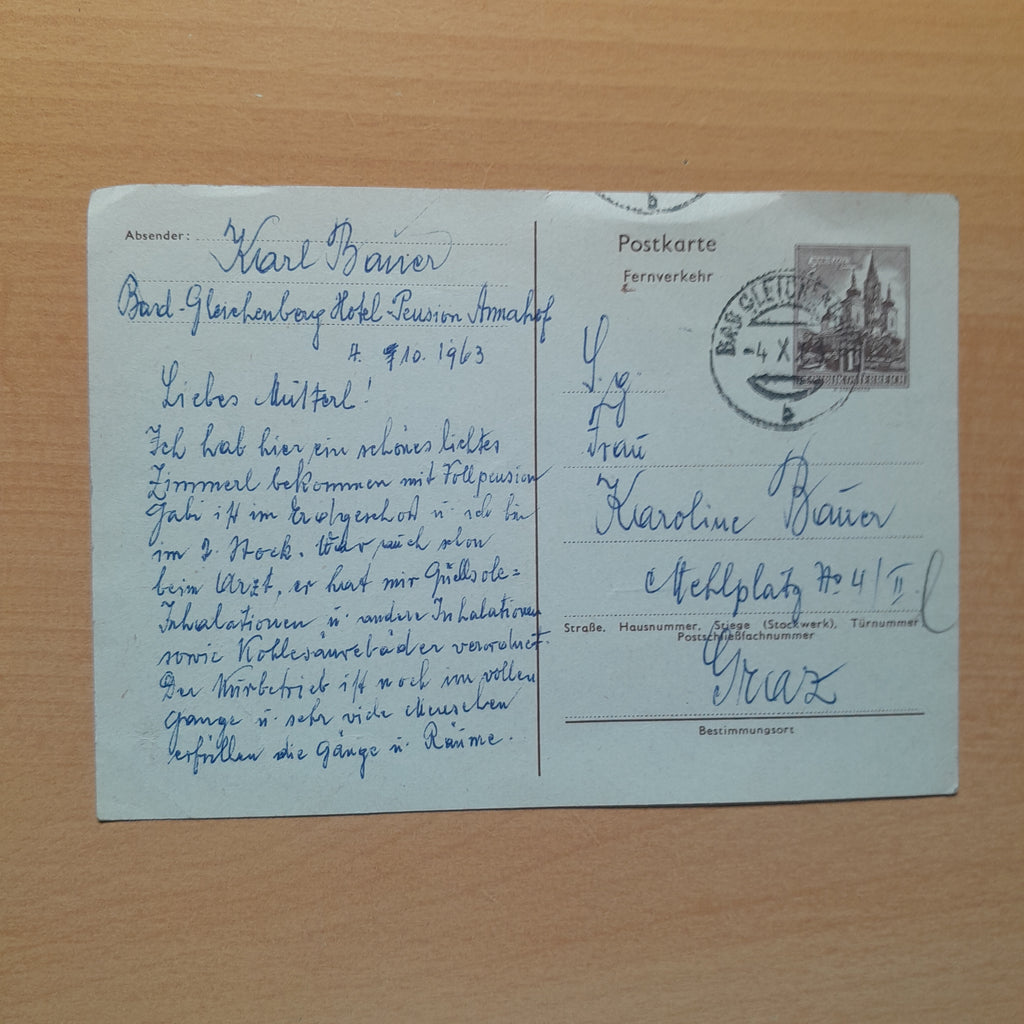 Absender: Karl Bauer
Bad-Gleichenberg Hotel-Pension Annahof
4. 10. 1963
Liebes Mutterl!
Ich hab hier ein schönes lichtes
Zimmerl bekommen mit Vollpension
Gabi ist im Erdgeschoß u. ich bin
im 2. Stock. War auch schon
beim Arzt, er hat mir Quellsole=
Inhalationen u. andere Inhalationen
sowie Kohlesäurebäder verordnet.
Der Kurbetrieb ist noch im vollen
Gange u. sehr viele Menschen
erfüllen die Gänge u. Räume.
b
Postkarte
Fernverkehr
BAD GLEICHEN
-4. X
b
REPUBLIK ÖSTERREICH
S. g.
Frau
Karoline Bauer
Mehlplatz No 4/II.
Straße, Hausnummer, Stiege (Stockwerk), Türnummer
Postschließfachnummer
Graz
Bestimmungsort